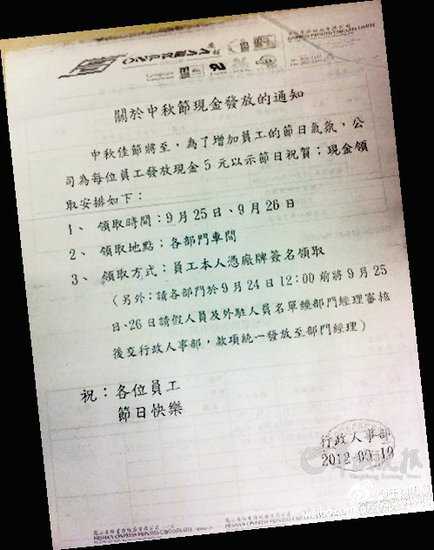 關於中秋節現金發放的通知
中秋佳節將至,為了增加員工的節日氣氛,公
司為每位員工發放現金5元以示節日祝賀;現金領
取安排如下:
1、領取時間:9月25日、9月26日
2、領取地點:各部門車間
3、領取方式:員工本人憑廠牌簽名領取
(另外:請各部門於9月24日12:00前將9月25
日、26日請假人員及外駐人員名單經部門經理審核
後交行政人事部,款項統一發放至部門經理)
祝:各位員工
節日快樂
行政人事部
2012-09-19